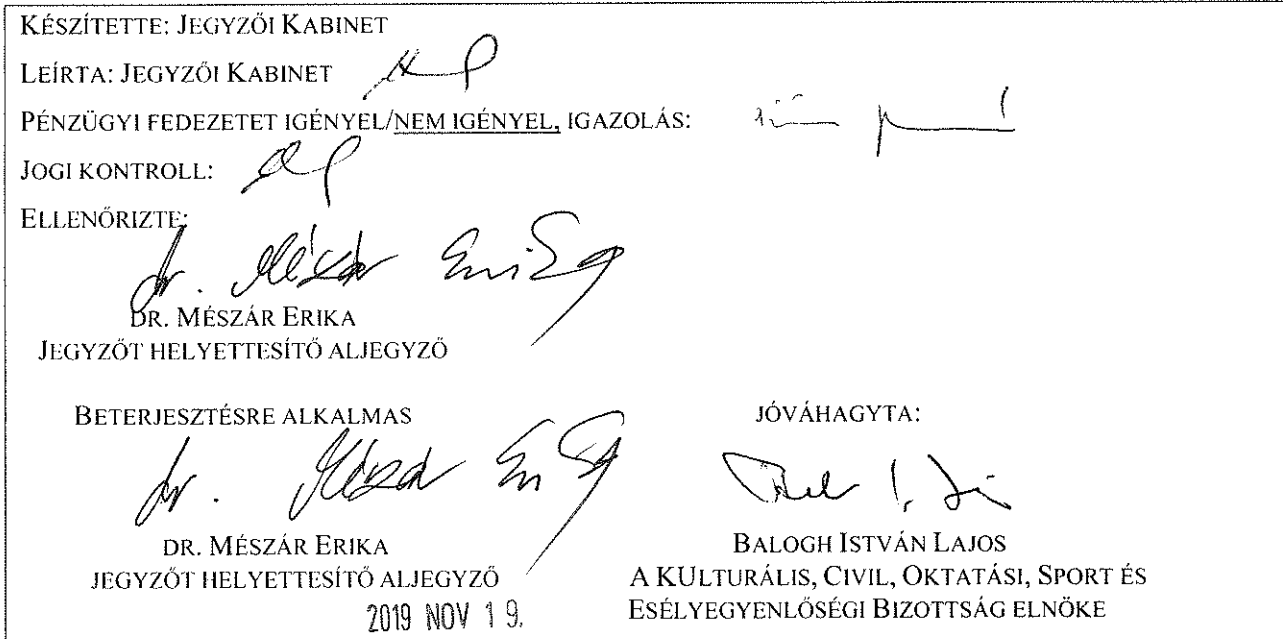 KÉSZÍTETTE: JEGYZŐI KABINET
LEÍRTA: JEGYZŐI KABINET
PÉNZÜGYI FEDEZETET IGÉNYEL/NEM IGÉNYEL, IGAZOLÁS:
JOGI KONTROLL:
ELLENŐRIZTE:
dr. Mészár Erika
DR. MÉSZÁR ERIKA
JEGYZŐT HELYETTESÍTŐ ALJEGYZŐ
BETERJESZTÉSRE ALKALMAS
JÓVÁHAGYTA:
dr. Mészár Erika
DR. MÉSZÁR ERIKA
JEGYZŐT HELYETTESÍTŐ ALJEGYZŐ
2019 NOV 19.
BALOGH ISTVÁN LAJOS
A KULTURÁLIS, CIVIL, OKTATÁSI, SPORT ÉS
ESÉLYEGYENLŐSÉGI BIZOTTSÁG ELNÖKE